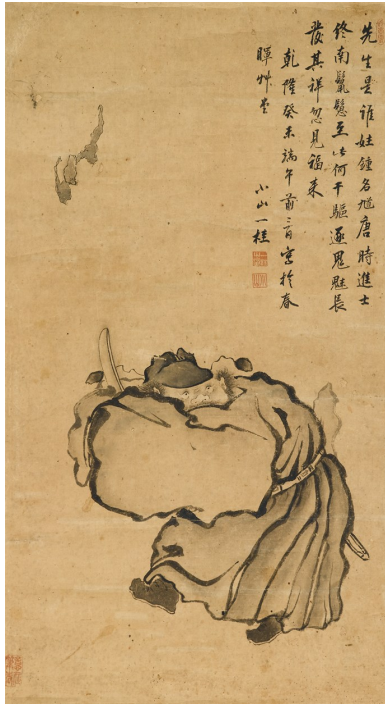 先生是誰姓鍾名馗唐時進士
終南至此何干驅逐鬼魅長
發其祥忽見福来
乾隆癸未端午前日寫於春
暉艸堂 小山一桂